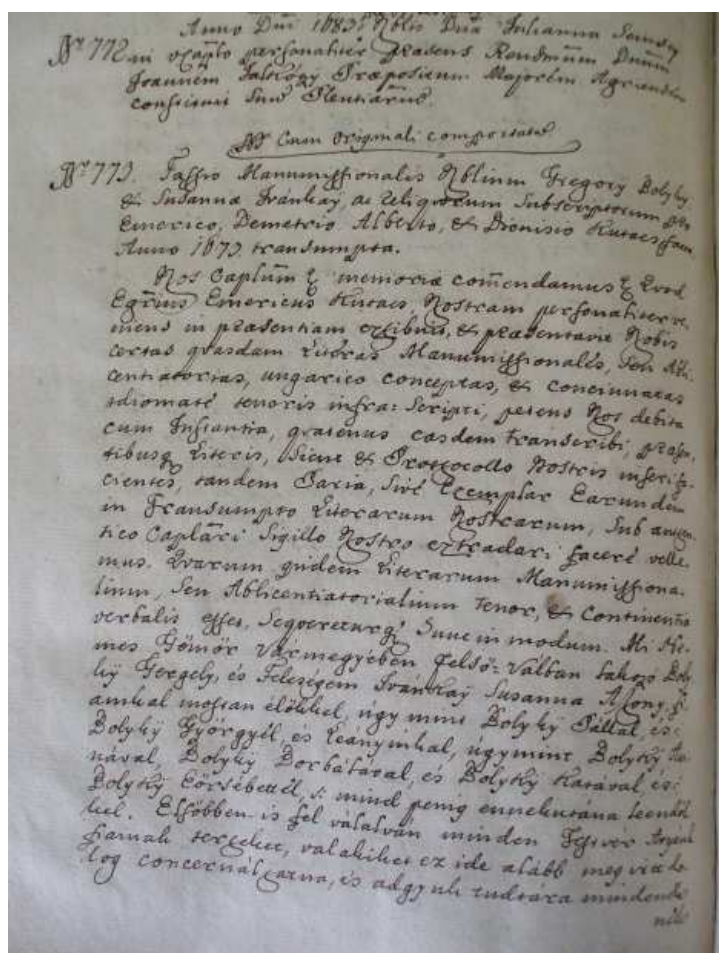 Anno Dni 1683. Nblis Dna Julianna Semsey
Nro 772. in personaliter praesens Rendmum Dnum
Joannem Praepositum Majorem Agriensem
constituit Suum Plentiarium.
Cum Originali comportata
Nro 773. Fassio Manumissionalis Nblium Gregory Bolyky
& Susannae Ivánkaÿ, ac Religiorum Subscriptorum pro
Emerico, Demetrio Alberto, & Dionisio Kutass fam
Anno 1673 transumpta.
Nos Caplum & memoriae commendamus & Quod
Egrius Emericus Kutass Nostram personaliter ve-
niens in praesentiam exhibuit, & praesentavit Nobis
certas quasdam Literas Manumissionales, seu Abli-
centiatorias, ungarico conceptas, & concinnatas
idiomate tenoris infra: Scripti, petens Nos debita
cum Instantia, quatenus easdem transcribi, praesen-
tibusq Literis, sicut & Prottocollo Nostris inseri fa-
cientes, tandem Paria, sive Exemplar Earundem
in Transumpto Literarum Nostrarum, Sub authen-
tico Caplari Sigillo Nostro extradari facere velle-
mus. Quarum quidem Literarum Manumissiona-
lium, seu Ablicentiatorialium tenor, & Continentia
verbalis esset, Sequereturq Hunc in modum. Mi Ne-
mes Gömör Vármegyében Felsö: Válban lakozó Boly-
kÿ Gergely, és Feleségem Ivánkaÿ Susanna Aszony, fi-
aimkal mostan élökkel, úgy mint Bolykÿ Pállal, és:
Bolykÿ Györgyél, és Leányinkal, úgymint Bolykÿ
nával, Bolykÿ Borbálával, és Bolykÿ Katával, és:
Bolykÿ Eörsébettél, s: mind penig ennekutána leendök-
kel. Elsöbben is fel vállalván minden Testvér Atyánk
fiainak terheket, valakiket ez ide alább meg irt do-
log concernálhatna, és adgyuk tudtára mindenek-
nek